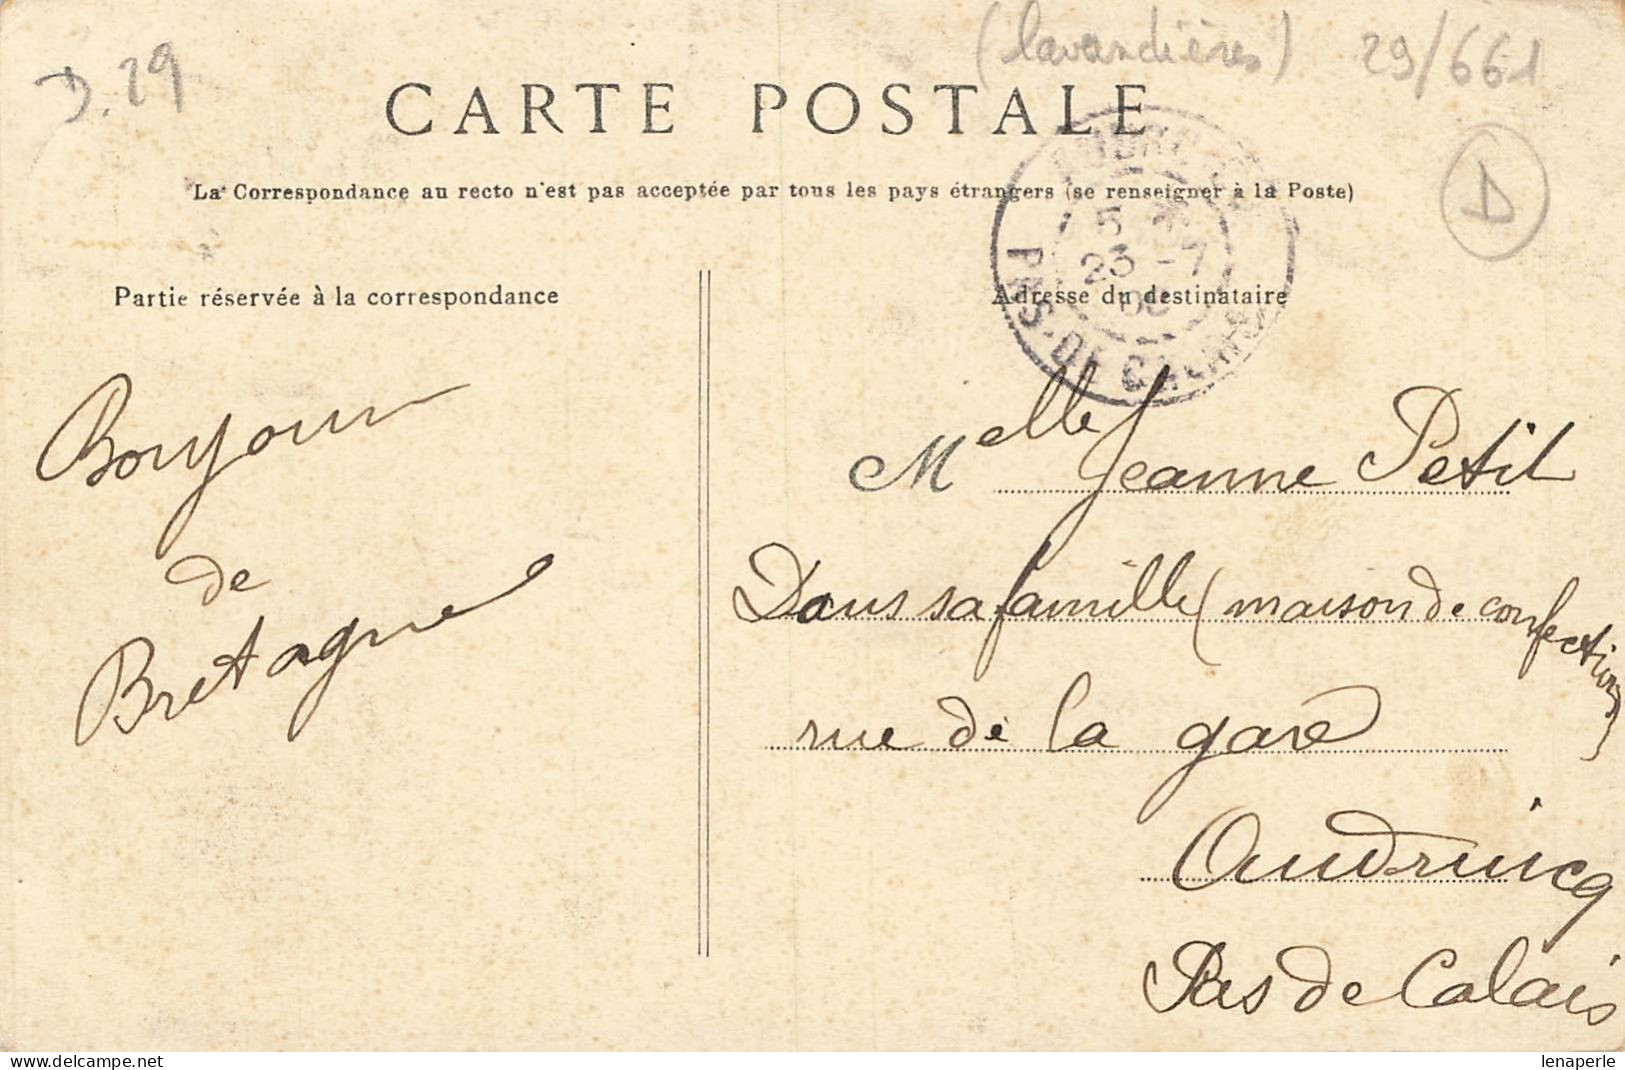 D. 29
(lavandières) 29/661
CARTE POSTALE
La Correspondance au recto n'est pas acceptée par tous les pays étrangers (se renseigner à la Poste)
D
5
23 -7
PAS-DE-CALAIS
Partie réservée à la correspondance
Adresse du destinataire
Bonjour
de
Bretagne
Melle Jeanne Petit
Dans sa famille (maison de confections)
rue de la gare
Audruicq
Pas de Calais
www.delcampe.net
lenaperle